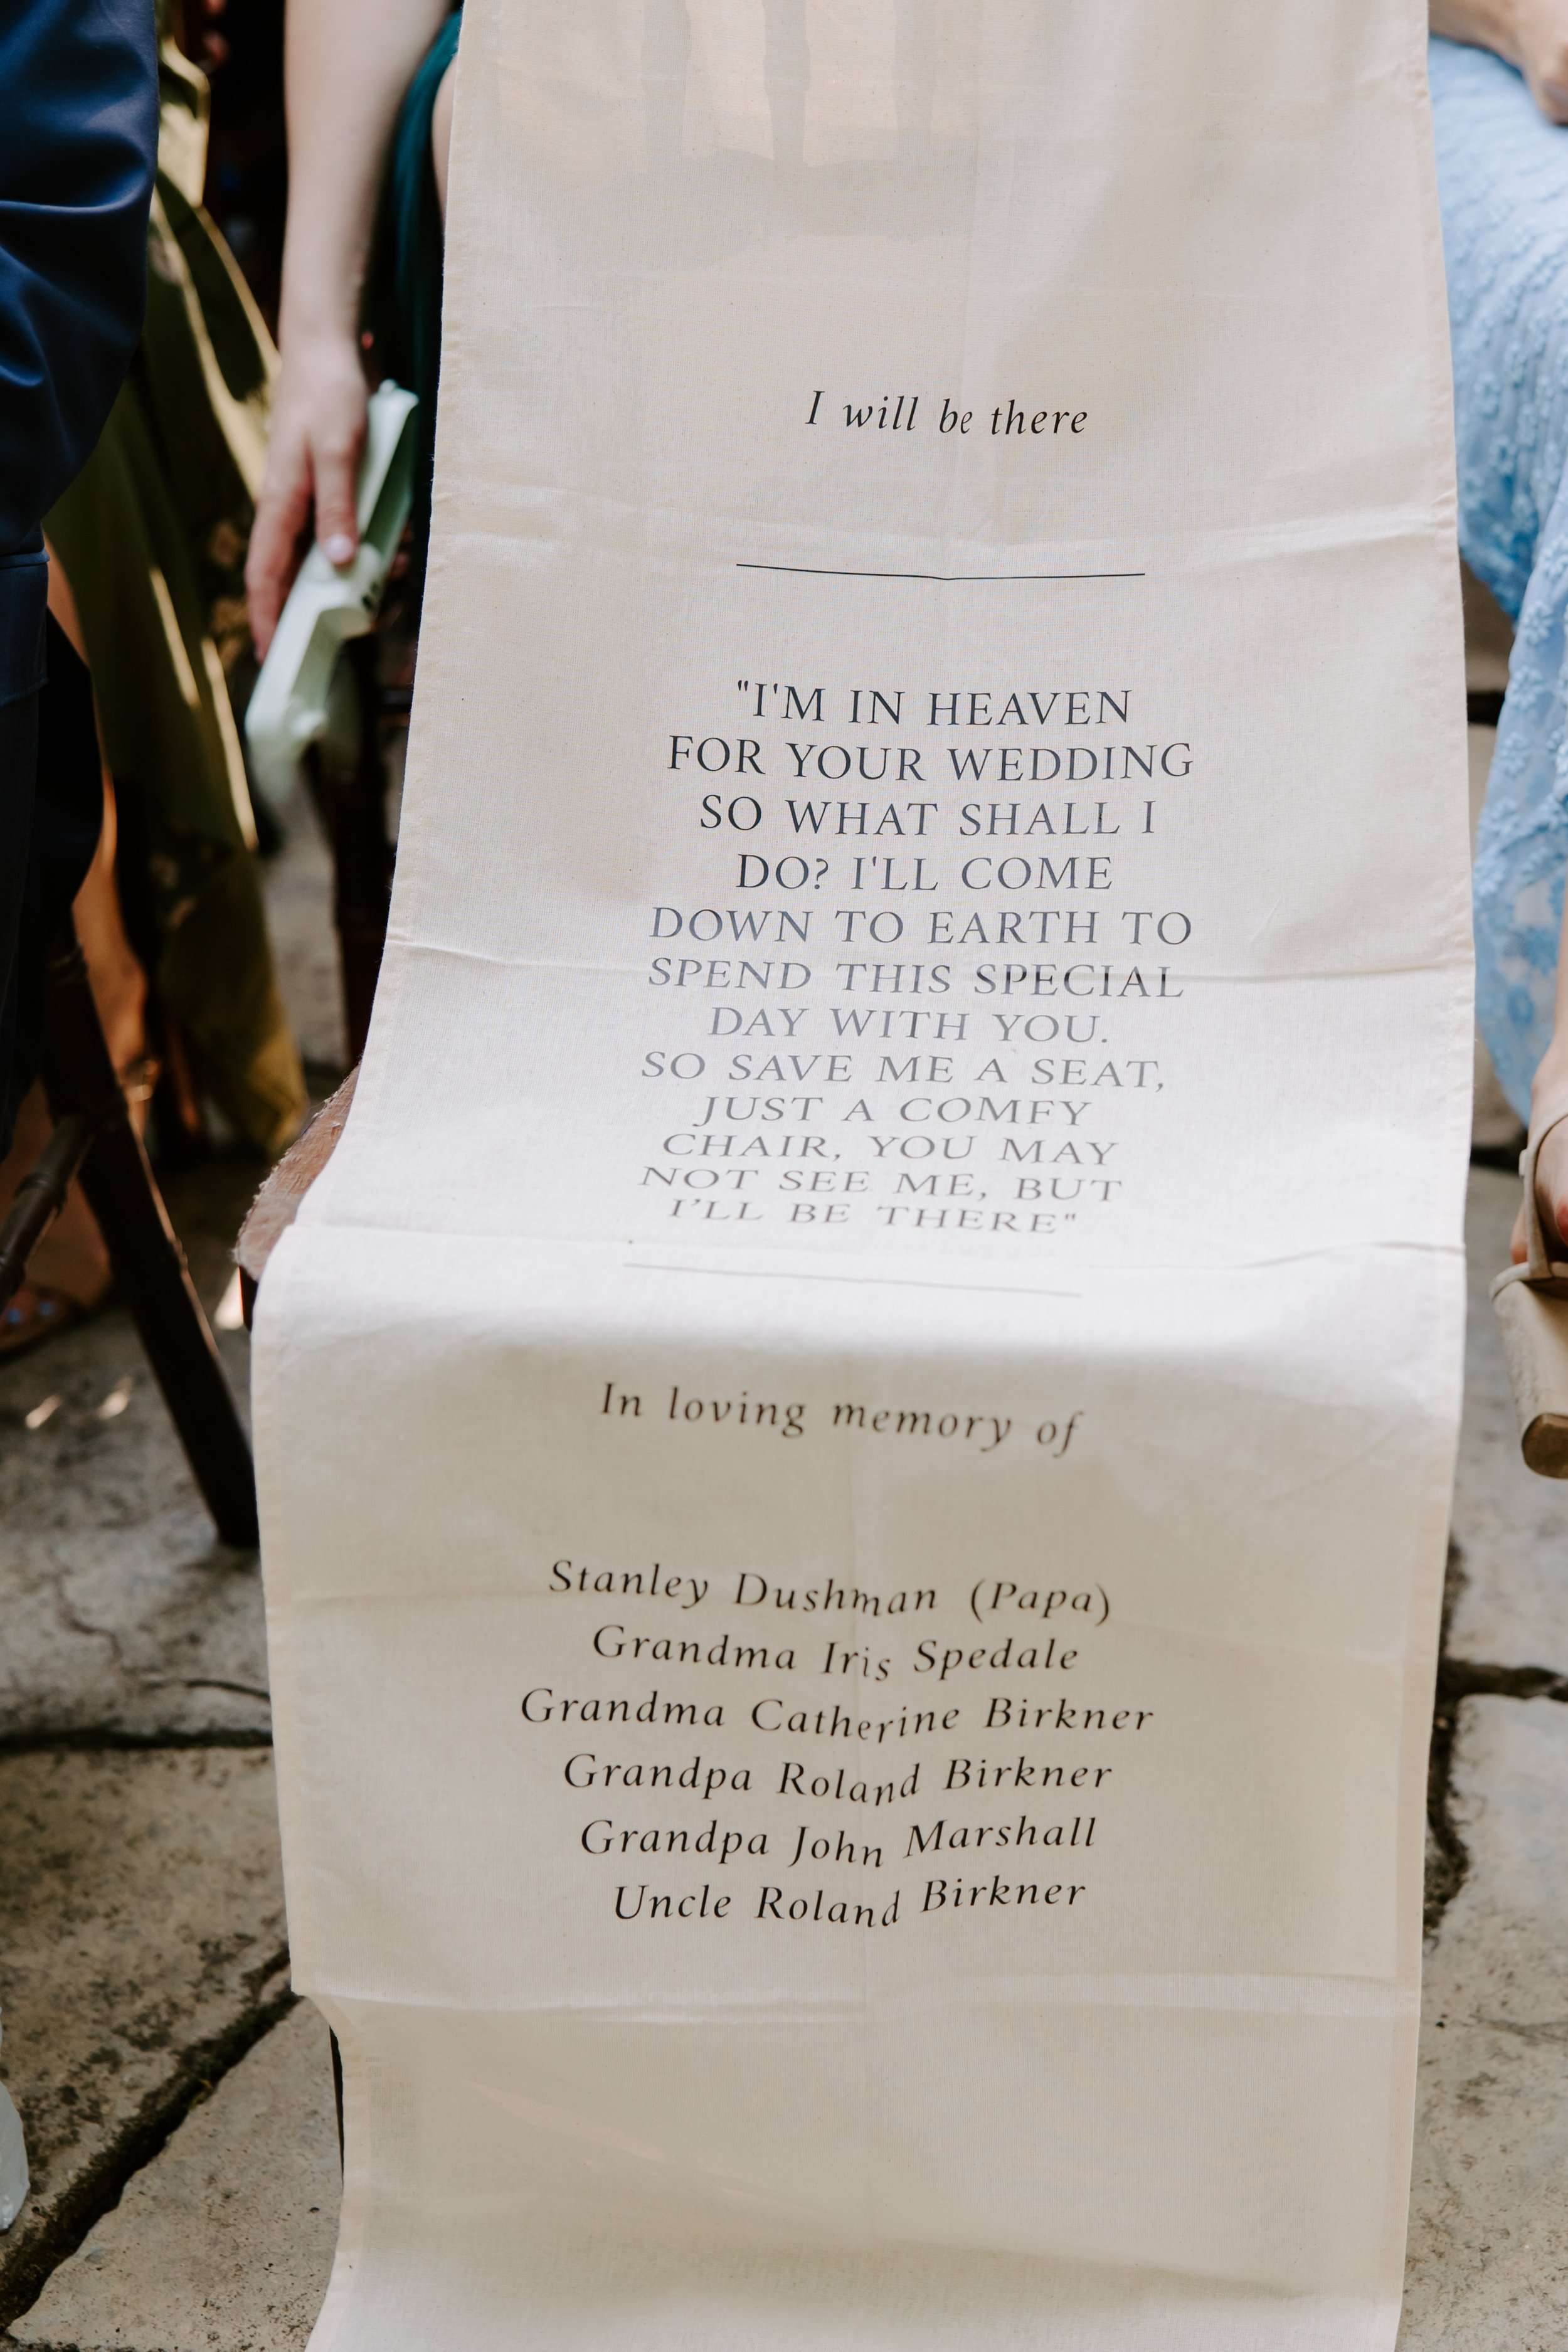 I will be there
"I'M IN HEAVEN
FOR YOUR WEDDING
SO WHAT SHALL I
DO? I'LL COME
DOWN TO EARTH TO
SPEND THIS SPECIAL
DAY WITH YOU.
SO SAVE ME A SEAT,
JUST A COMFY
CHAIR, YOU MAY
NOT SEE ME, BUT
I’LL BE THERE"
In loving memory of
Stanley Dushman (Papa)
Grandma Iris Spedale
Grandma Catherine Birkner
Grandpa Roland Birkner
Grandpa John Marshall
Uncle Roland Birkner